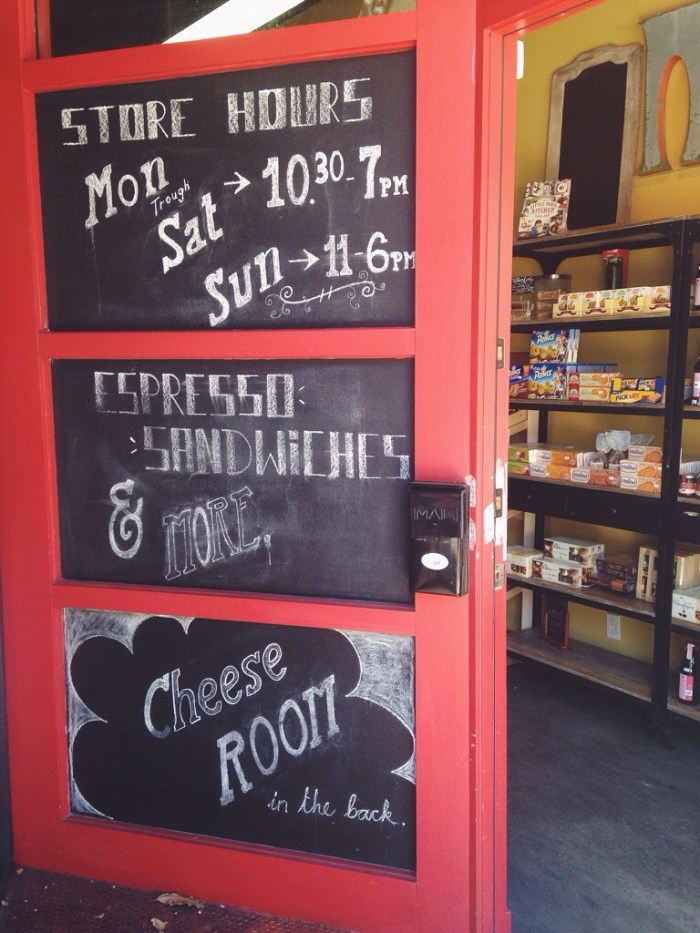 STORE HOURS
Mon Trough Sat → 10.30-7PM
Sun → 11-6PM
ESPRESSO
SANDWICHES
& MORE.
MAIL
Cheese
ROOM
in the back.
KITCHEN
PiCK UP!